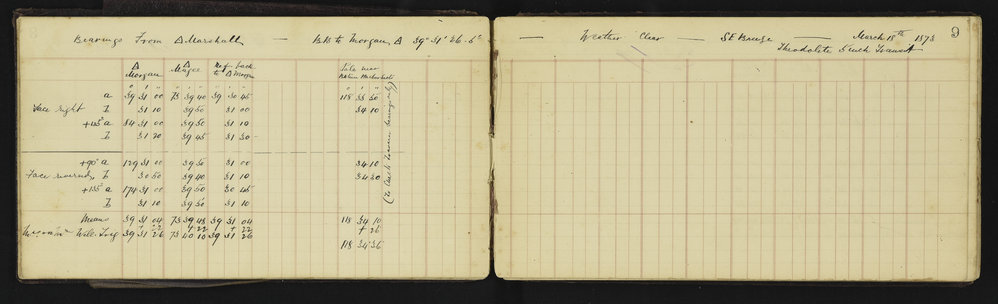 9
Bearings From △ Marshall — BB to Morgan △ 39° 31' 26.5" — Weather Clear — SE Breeze — March 18th 1873
Theodolite 5 inch Transit
△ Morgan △ Magee Ref back to △ Morgan
° ' " ° ' " ° ' " ° ' "
Face right a 39 31 00 73 39 40 39 30 45 118 33 50
b 31 10 39 50 31 00 34 10
+45° a 84 31 00 39 50 31 10
b 31 20 39 45 31 30
(to check former bearings only)
+90° a 129 31 00 39 50 31 00 34 10
Face reversed b 30 50 39 40 31 10 34 30
+135° a 174 31 00 39 50 30 45
b 31 10 39 50 31 10
Means 39 31 04 73 39 48 39 31 04 118 34 10
+ 22 + 22 + 22 + 26
Well. Trig 39 31 26 73 40 10 39 31 26
118 34 36